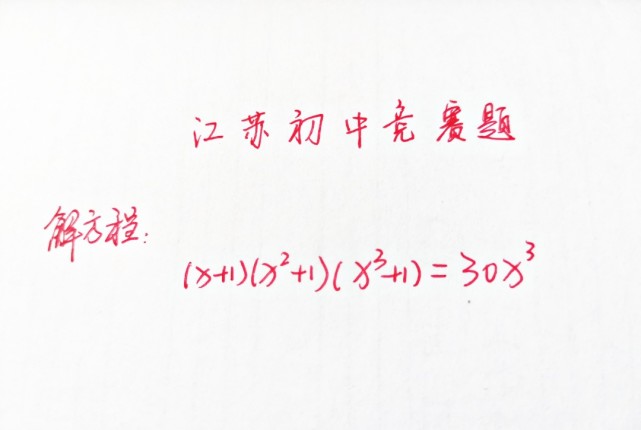 江苏初中竞赛题
解方程:
(x+1)(x²+1)(x³+1)=30x³